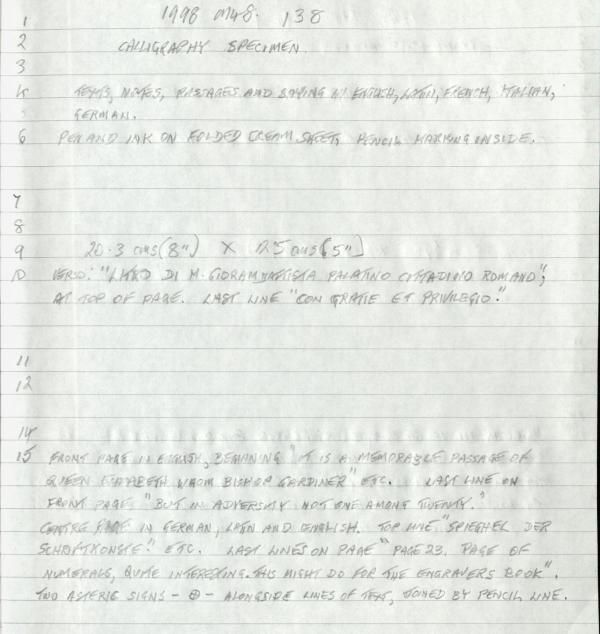 1 1998 M48. 138
2 CALLIGRAPHY SPECIMEN.
3
4 TEXTS, NOTES, PASSAGES AND SAYING IN ENGLISH, LATIN, FRENCH, ITALIAN,
5 GERMAN.
6 PEN AND INK ON FOLDED CREAM SHEET, PENCIL MARKING INSIDE.
7
8
9 20.3 cms (8") X 12.5 cms [5"]
10 VERSO: "LIBRO DI M. PALATINO CITTADINO ROMANO";
AT TOP OF PAGE. LAST LINE "CON GRATIE ET PRIVILEGIO."
11
12
14
15 FRONT PAGE IN ENGLISH, "IT IS A MEMORABLE PASSAGE OF
QUEEN ELIZABETH WHOM BISHOP GARDINER" ETC. LAST LINE ON
FRONT PAGE "BUT IN ADVERSITY NOT ONE AMONG TWENTY."
CENTRE PAGE IN GERMAN, LATIN AND ENGLISH. TOP LINE "SPIEGHEL DER
SCHRIFTKONSTE." ETC. LAST LINES ON PAGE "PAGE 23. PAGE OF
NUMERALS, QUITE INTERESTING. THIS MIGHT DO FOR THE ENGRAVERS BOOK".
TWO ASTERIC SIGNS - ⊕ - ALONGSIDE LINES OF TEXT, JOINED BY PENCIL LINE.